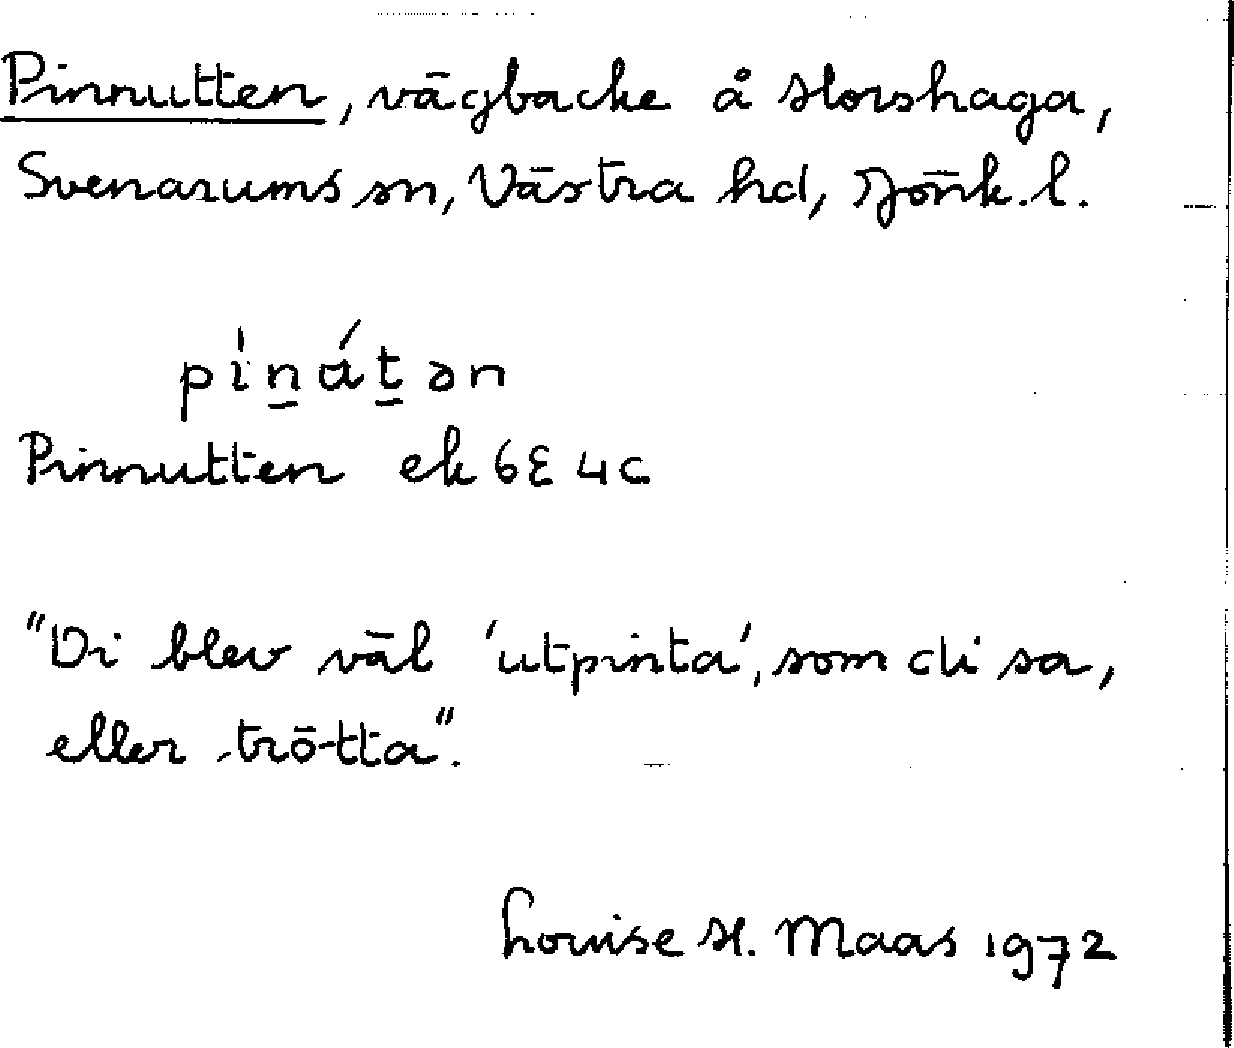 Pinnutten, vägbacke å Horshaga,
Svenarums sn, Västra hd, Jönk. l.
pi̍ṉáṯən
Pinnutten ek 6E 4c
"Di blev väl 'utpinta', som di sa,
eller trötta".
Louise H. Maas 1972